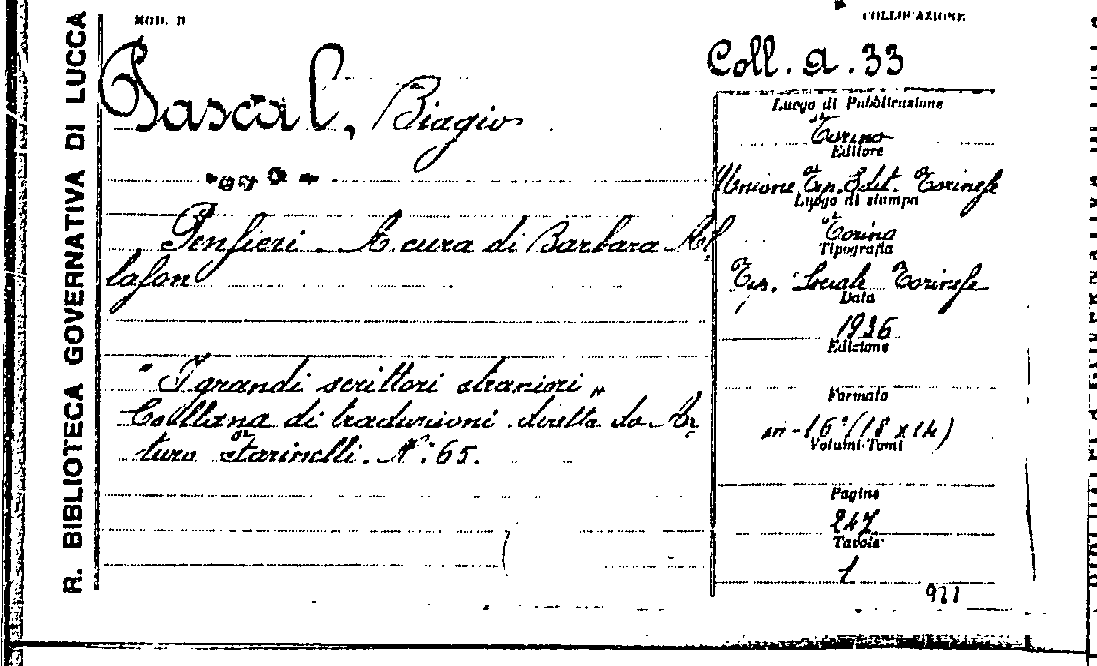 R. BIBLIOTECA GOVERNATIVA DI LUCCA
MOD. D
COLLOCAZIONE
Coll. a. 33
Pascal, Biagio
Pensieri - A cura di Barbara Al
lason
"I grandi scrittori stranieri"
Collana di traduzioni diretta da Ar
turo Farinelli. N.° 65.
Luogo di Pubblicazione
Torino
Editore
Unione Tip. Edit. Torinese
Luogo di stampa
Torino
Tipografia
Tip. Sociale Torinese
Data
1936
Edizione
Formato
in-16° (18 x 12)
Volumi-Tomi
Pagine
247
Tavole
1